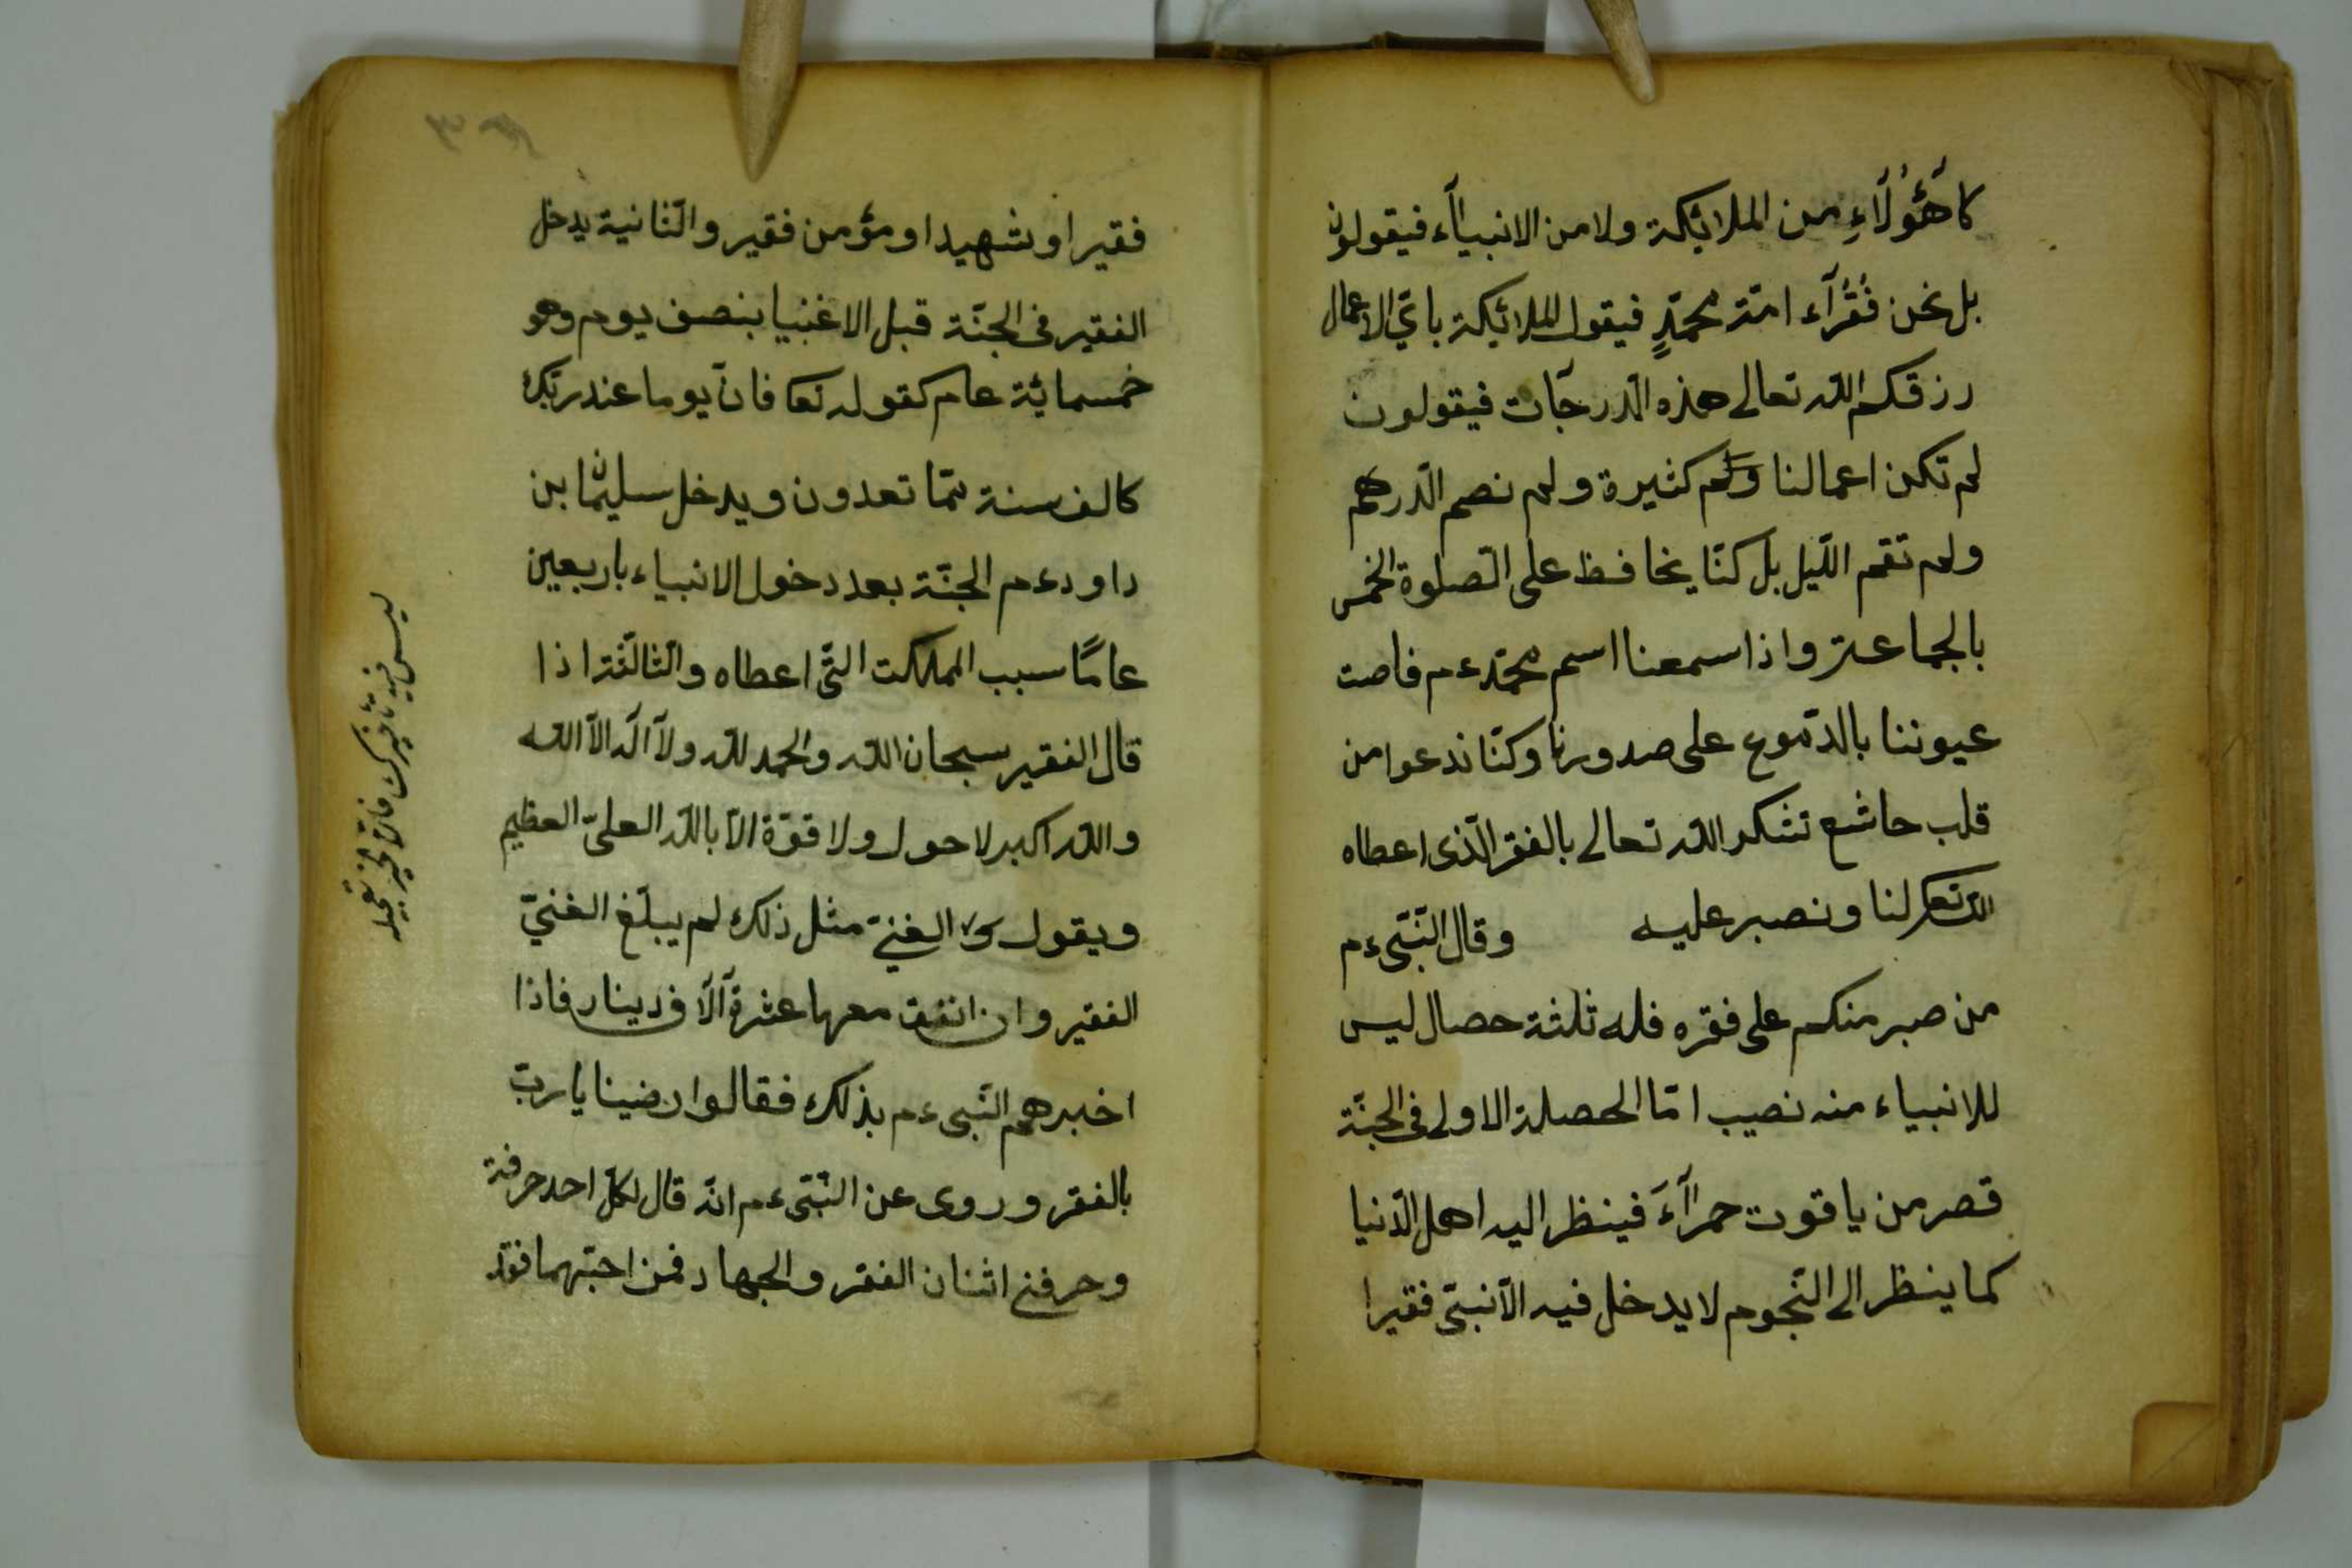 كا هَٓؤُلَٓاءِ من الملائكة ولا من الانبيآء فيقولون
بل نحن فُقُرَٓاء امّة محمّدٍ فيقول الملائكة باىّ الاعمال
رزقكم الله تعالى هذه الدّرجٓات فيقولون
لم تكن اعمالنا كثيرة ولم نصم الدّرهم
ولم نقم اللّيل بل كنّا يحافظ على الصّلوة الخمس
بالجماعتر واذا سمعنا اسم محمّد ءم فاصت
عيوننا بالدّموع على صدورنا وكنّا ندعوا من
قلب حاشع تشكر الله تعالى بالفقر الّذى اعطاه
لنا ونصبر عليه وقال النّبىّ ءم
من صبر منكم على فقره فله ثلثة حصال ليس
للانبياء منه نصيب امّا الحصلة الاولى فى الجنّة
قصر من ياقوت حمرَٓاءَ فينظر اليه اهل الدّنيا
كما ينظر الى النّجوم لا يدخل فيه الّا نبىّ فقيرا
فقيرا و شهيد او مؤمن فقير والثّانية يدخل
الفقير فى الجنّة قبل الاغنيا بنصف يوم وهو
خمسمائة عام كقوله تعا فانّ يوما عند ربّك
كالف سنة ممّا تعدون ويدخل سليمان بن
داود ءم الجنّة بعد دخول الانبياء باربعين
عامًا سبب المملكت الّتى اعطاه والثّالثة اذا
قال الفقير سبحان الله والحمد لله ولآ اله الّا الله
والله اكبر لا حول ولا قوّة الّا بالله العلىّ العظيم
ويقول الغنىّ مثل ذلك لم يبلّغ الغنىّ
الفقير وان انفق معها عشرة آلاف دينار فاذا
اخبرهم النّبى ءم بذلك فقالوا رضينا يا ربّ
بالفقر وروى عن النّبىّ ءم انّه قال لكلّ احد حرفة
وحرفتى اثنان الفقر والجهاد فمن احبّهما فقد
ليس فيه